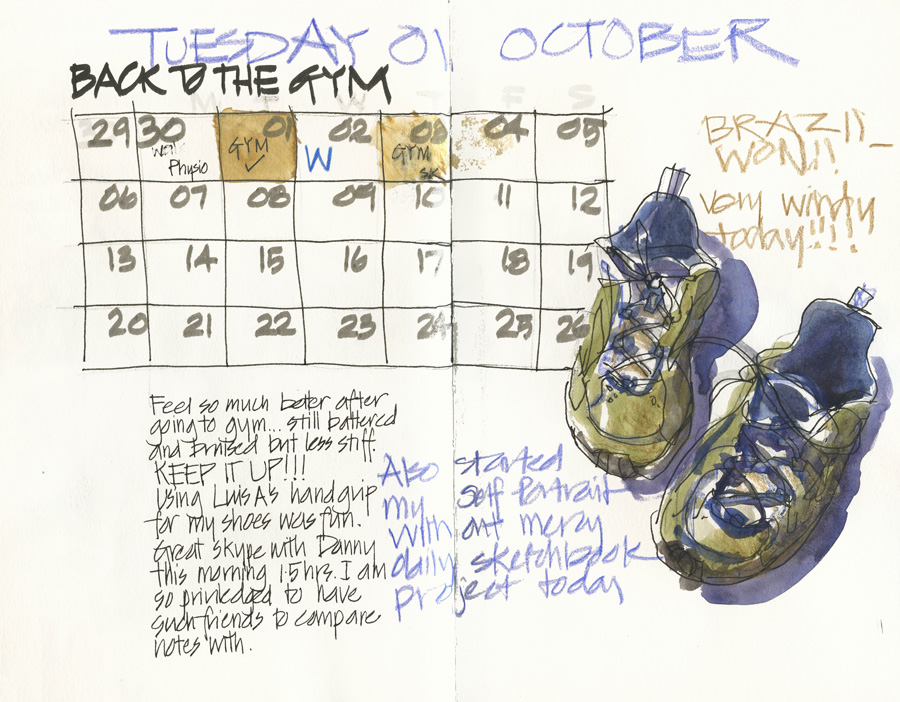 TUESDAY 01 OCTOBER
BACK TO THE GYM
M T W T F S
29 30 01 02 03 04 05
Physio GYM ✓ W GYM SK
06 07 08 09 10 11 12
13 14 15 16 17 18 19
20 21 22 23 24 25 26
BRAZIL
WON!!
very windy
today!!!!
Feel so much beter after
going to gym... still battered
and bruised but less stiff.
KEEP IT UP!!!
Using Luis A's hand grip
for my shoes was fun.
Great skype with Danny
this morning 1.5hrs. I am
so priviledged to have
such friends to compare
notes with.
Also started
my Self Portrait
with art mercy
daily sketchbook
project today